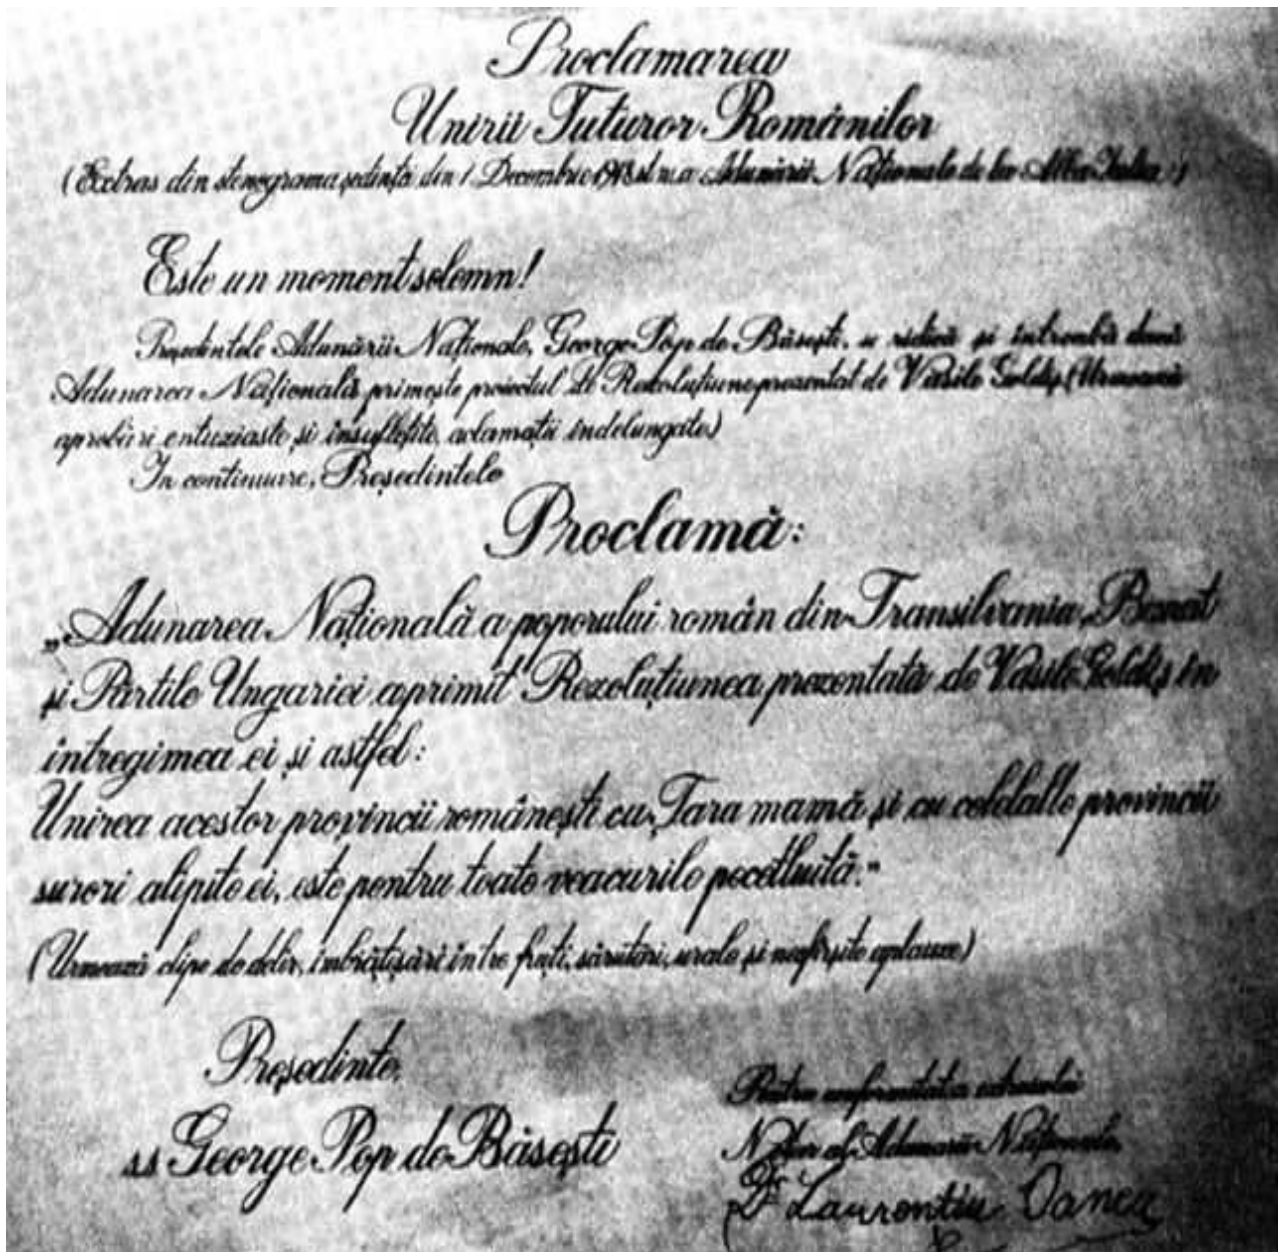 Proclamarea
Unirii Tuturor Românilor
(Extras din stenograma ședință din 1 Decembrie 1918 st. n. a Adunării Naționale de la Alba Iulia.)
Este un moment solemn!
Președintele Adunării Naționale, George Pop de Băsești, se ridică și întreabă dacă
Adunarea Națională primește proiectul de Rezoluțiune prezentat de Vasile Goldiș. (Urmează
aprobări entuziaste și însuflețite, aclamații îndelungate)
In continuare, Președintele
Proclamă:
„Adunarea Națională a poporului român din Transilvania, Banat
și Părtile Ungariei a primit Rezoluțiunea prezentată de Vasile Goldiș în
întregimea ei și astfel:
Unirea acestor provincii românești cu Țara mamă și cu celelalte provincii
surori alipite ei, este pentru toate veacurile pecetluită."
(Urmează clipe de delir, îmbrățișări între frați, sărutări, urale și nesfîrșite aplauze)
Președinte,
ss George Pop de Băsești
Pentru conformitatea extrasului
Notar al Adunării Naționale,
Dr Laurentiu Oanea